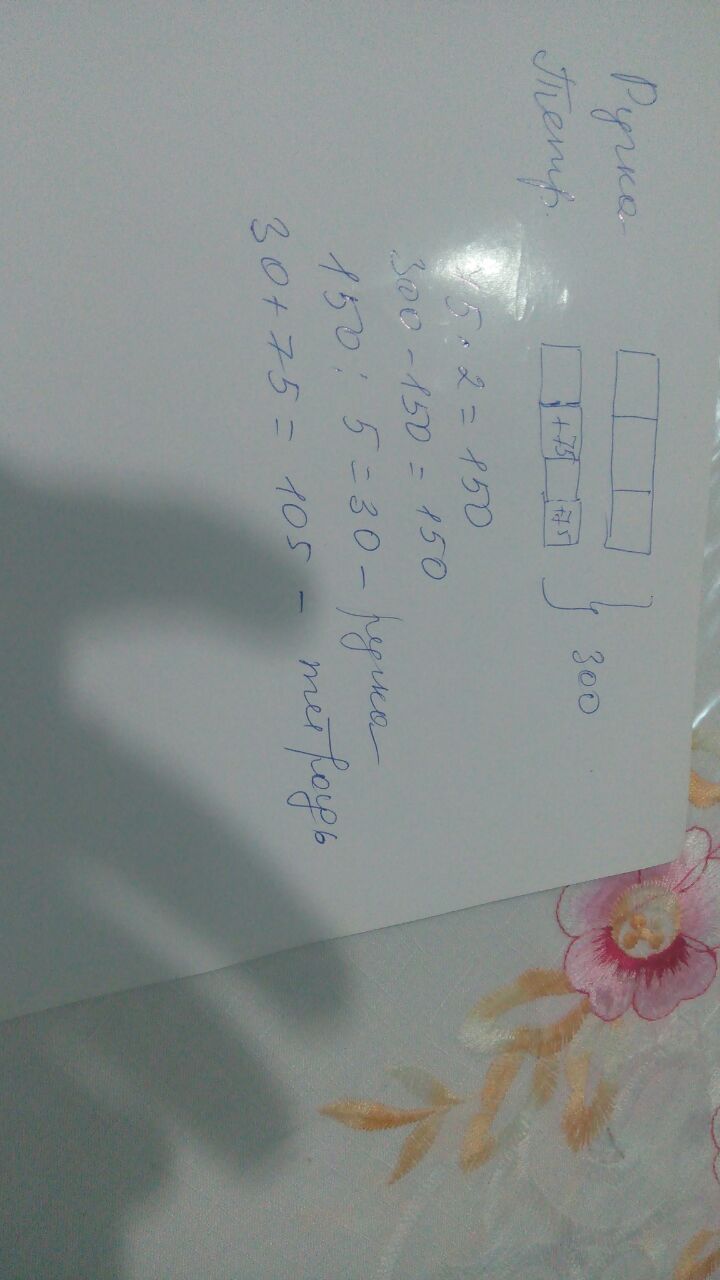 Ручка
Тетр.
+75
+75
300
5·2=150
300-150=150
150:5=30-ручка
30+75=105-тетрадь